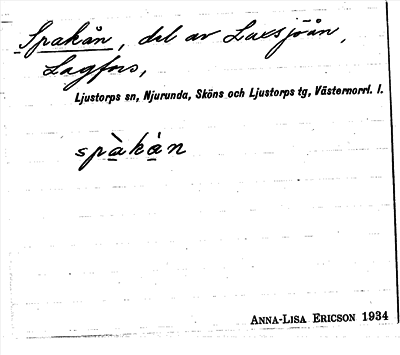 Spakån, del av Laxsjöån,
Lagfors,
Ljustorps sn, Njurunda, Sköns och Ljustorps tg, Västernorrl. l.
spà̱kà̱n
ANNA-LISA ERICSON 1934